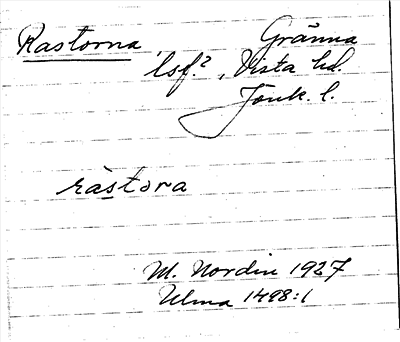 Rastorna Gränna
lsf.?, Vista hd.
Jönk. l.
rästora
M. Nordin 1927
Ulma 1498:1